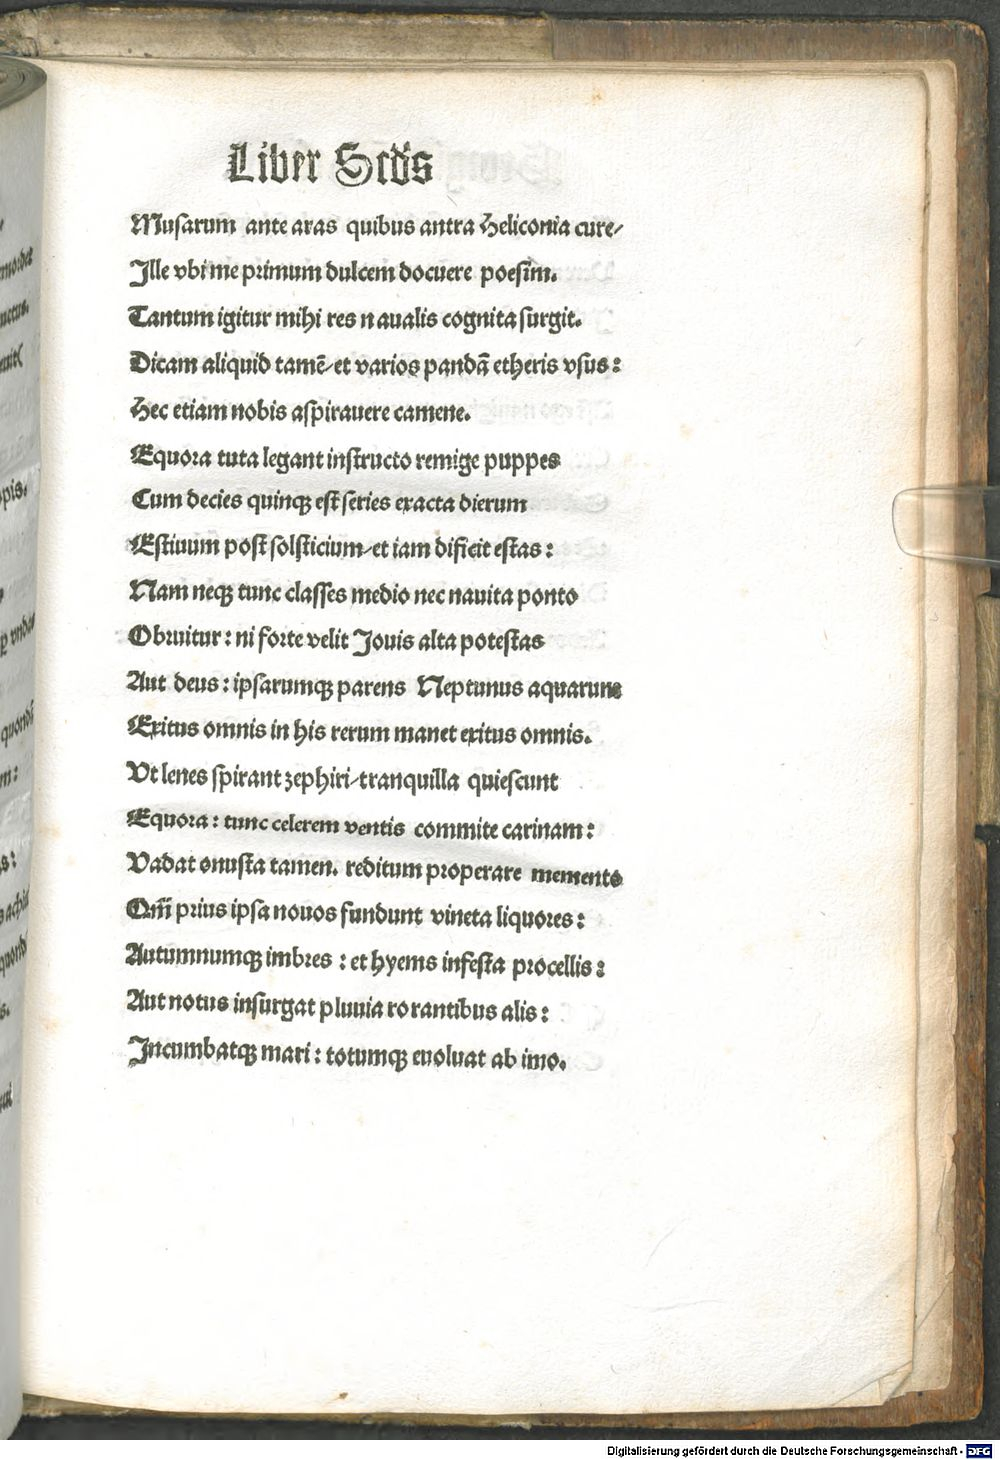 Liber Scd̄s
Musarum ante aras quibus antra Heliconia cure/
Ille vbi me primum dulcem docuere poesim.
Tantum igitur mihi res n aualis cognita surgit.
Dicam aliquid tamē/et varios pandā etheris vsus:
Hec etiam nobis aspirauere camene.
Equora tuta legant instructo remige puppes
Cum decies quinqꝫ est series exacta dierum
Estiuum post solsticium/et iam dificit estas:
Nam neqꝫ tunc classes medio nec nauita ponto
Obruitur: ni forte velit Jouis alta potestas
Aut deus: ipsarumqꝫ parens Neptunus aquarum
Exitus omnis in his rerum manet exitus omnis.
Vt lenes spirant zephiri/tranquilla quiescunt
Equora: tunc celerem ventis committe carinam:
Vadat onusta tamen. reditum properare memento
Qm̄ prius ipsa nouos fundunt vineta liquores:
Autumnumqꝫ imbres: et hyems infesta procellis:
Aut notus insurgat pluuia ro rantibus alis:
Incumbatqꝫ mari: totumqꝫ euoluat ab imo.
Digitalisierung gefördert durch die Deutsche Forschungsgemeinschaft - DFG